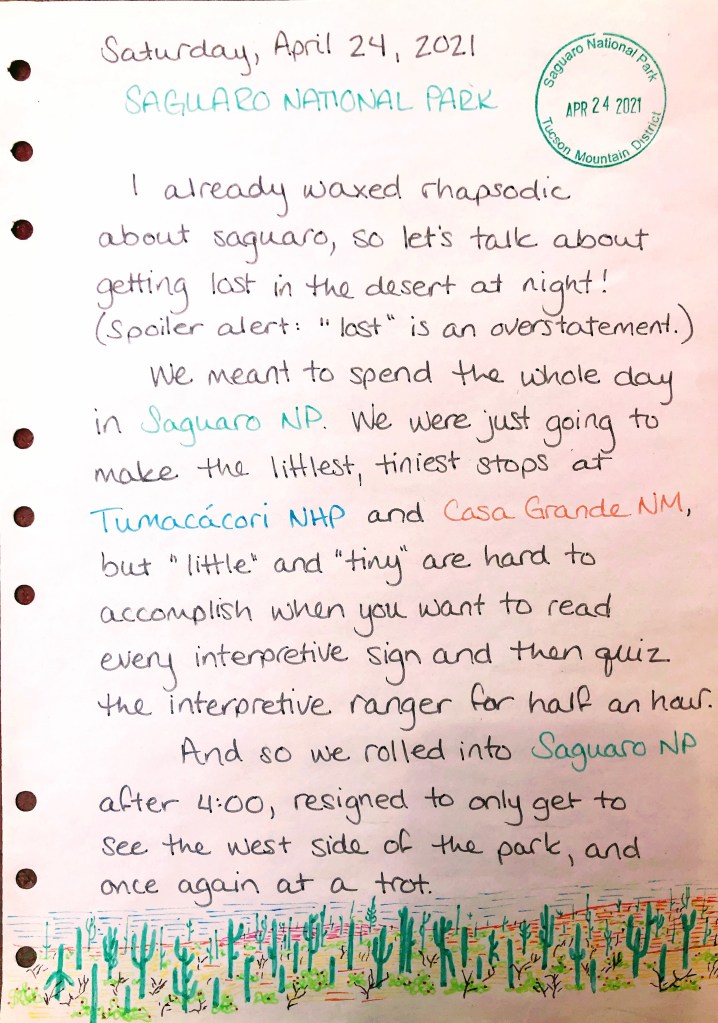 Saturday, April 24, 2021
SAGUARO NATIONAL PARK
Saguaro National Park
APR 24 2021
Tucson Mountain District
I already waxed rhapsodic
about saguaro, so let's talk about
getting lost in the desert at night!
(Spoiler alert: "lost" is an overstatement.)
We meant to spend the whole day
in Saguaro NP. We were just going to
make the littlest, tiniest stops at
Tumacácori NHP and Casa Grande NM,
but "little" and "tiny" are hard to
accomplish when you want to read
every interpretive sign and then quiz
the interpretive ranger for half an hour.
And so we rolled into Saguaro NP
after 4:00, resigned to only get to
see the west side of the park, and
once again at a trot.